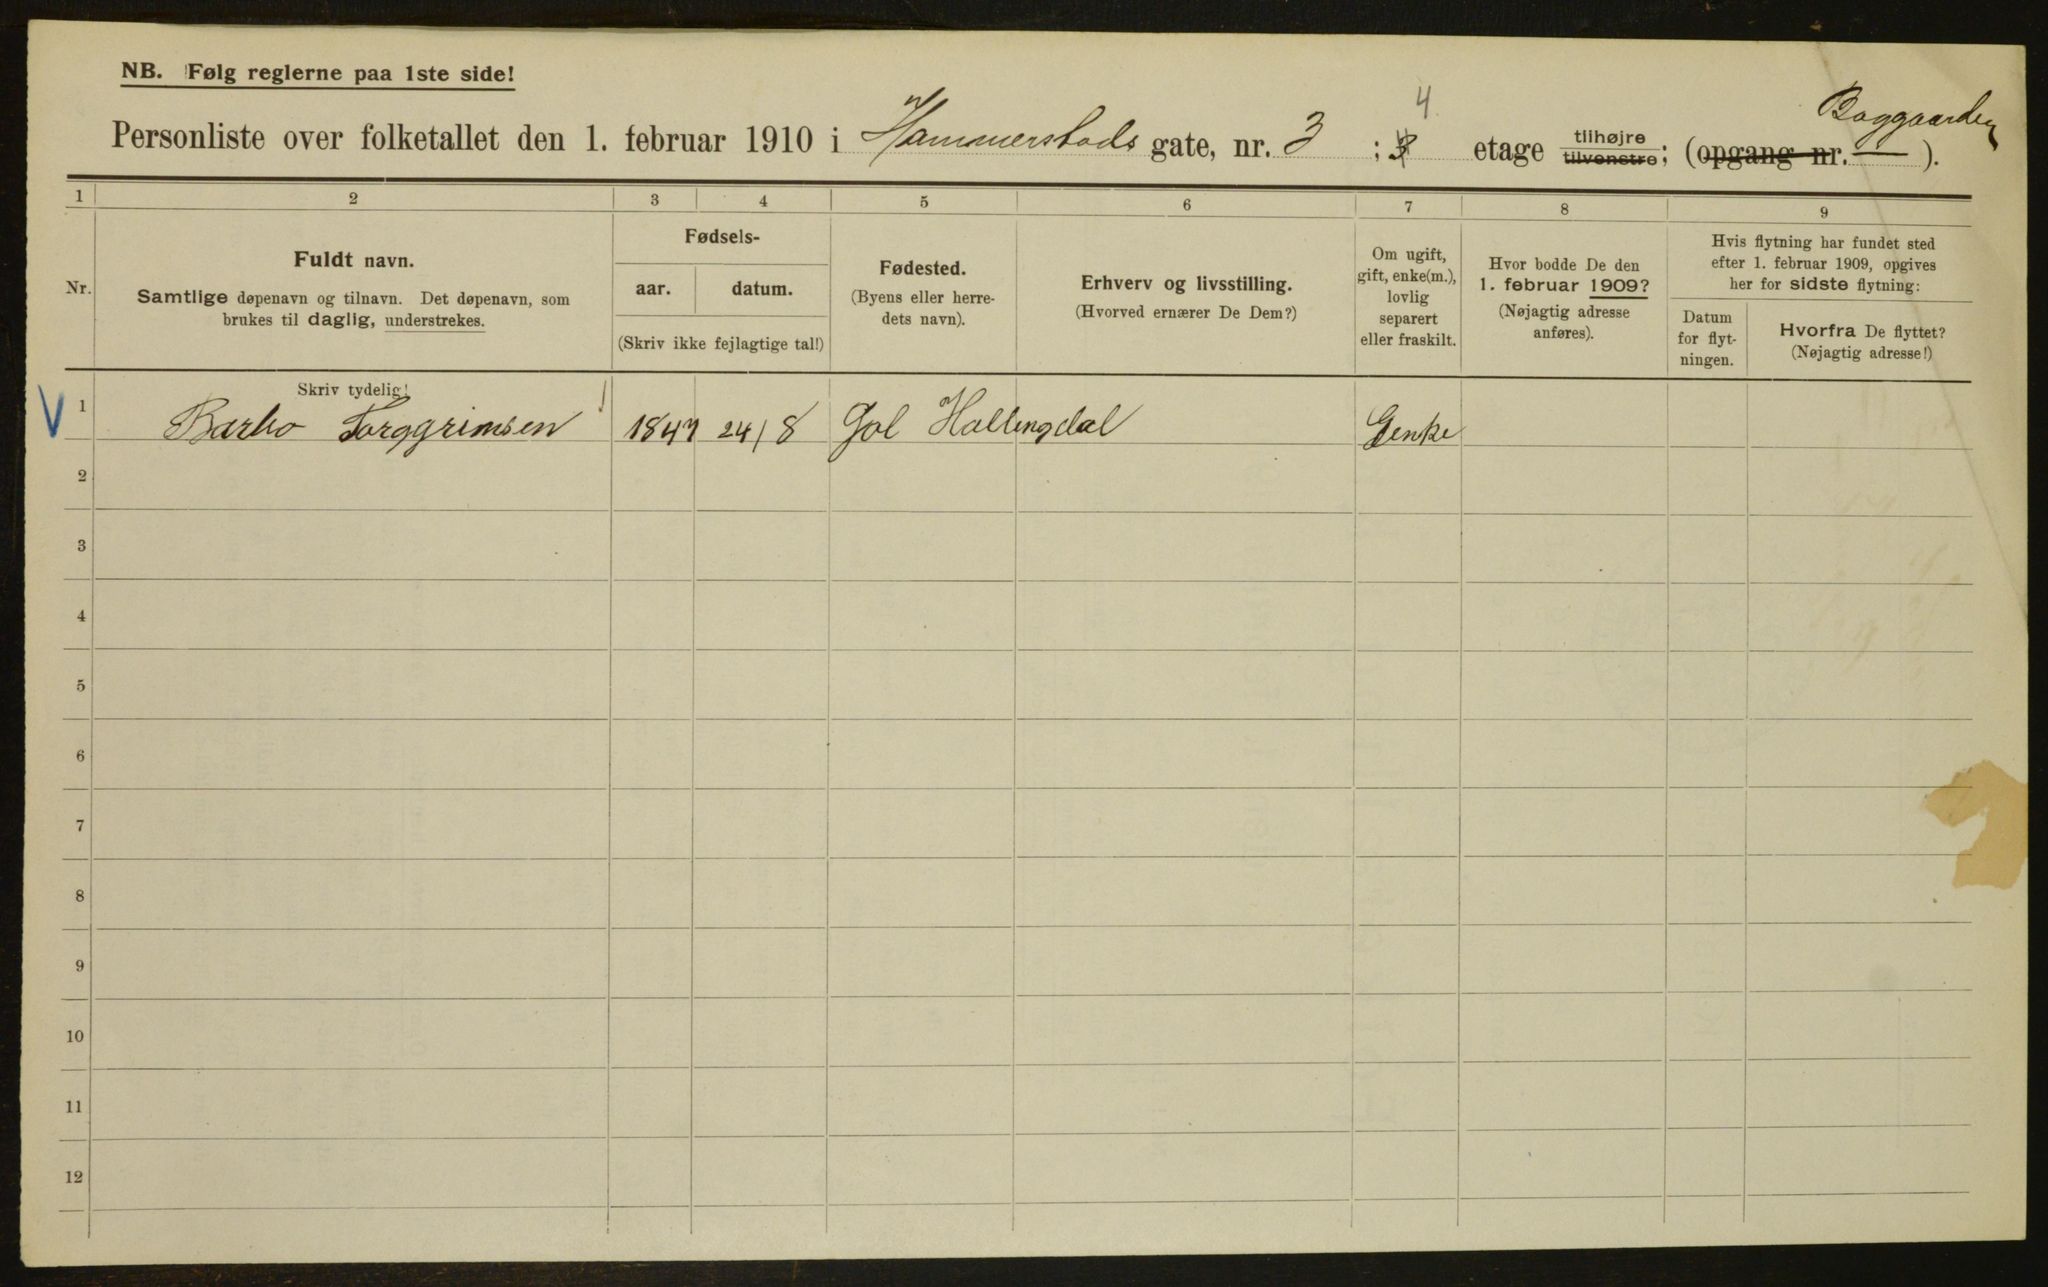 NB. Følg reglerne paa 1ste side!
4
Baggaarden
Personliste over folketallet den 1. februar 1910 i Hammerstads gate, nr. 3 ; etage tilhøjre tilvenstre; (opgang nr. — ).
1 2 3 4 5 6 7 8 9
Nr.
Fuldt navn.
Samtlige døpenavn og tilnavn. Det døpenavn, som
brukes til daglig, understrekes.
Skriv tydelig!
Fødsels-
aar. datum.
(Skriv ikke fejlagtige tal!)
Fødested.
(Byens eller herre-
dets navn).
Erhverv og livsstilling.
(Hvorved ernærer De Dem?)
Om ugift,
gift, enke(m.),
lovlig
separert
eller fraskilt.
Hvor bodde De den
1. februar 1909?
(Nøjagtig adresse
anføres).
Hvis flytning har fundet sted
efter 1. februar 1909, opgives
her for sidste flytning:
Datum
for flyt-
ningen.
Hvorfra De flyttet?
(Nøjagtig adresse!)
V 1 Barbo Torggrimsen 1847 24/8 Gol Hallingdal Enke
2
3
4
5
6
7
8
9
10
11
12